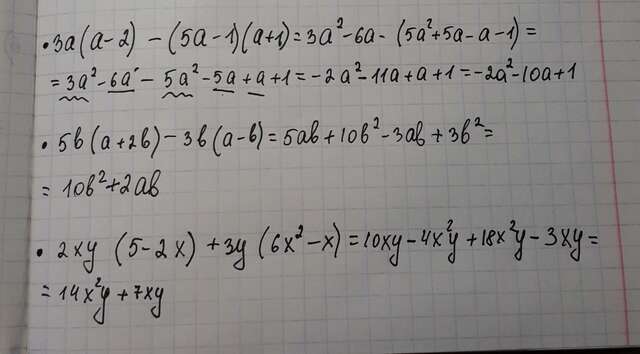 • 3a(a-2) - (5a-1)(a+1) = 3a² - 6a - (5a² + 5a - a - 1) =
= 3a² - 6a - 5a² - 5a + a + 1 = -2a² - 11a + a + 1 = -2a² - 10a + 1
• 5b(a+2b) - 3b(a-b) = 5ab + 10b² - 3ab + 3b² =
= 10b² + 2ab
• 2xy (5-2x) + 3y (6x² - x) = 10xy - 4x²y + 18x²y - 3xy =
= 14x²y + 7xy